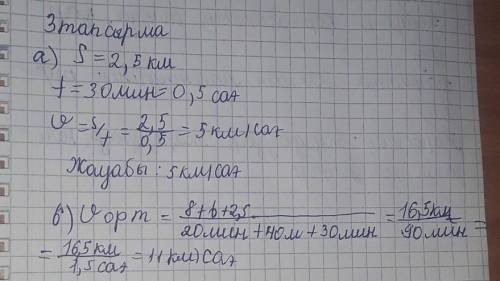 3тапсырма
а) S = 2,5 км
t = 30мин = 0,5 сағ
v = s/t = 2,5/0,5 = 5 км/сағ
Жауабы: 5 км/сағ
в) v орт = 8+6+2,5/20мин+40м+30мин = 16,5км/90мин =
= 16,5 км/1,5 сағ = 11 км/сағ